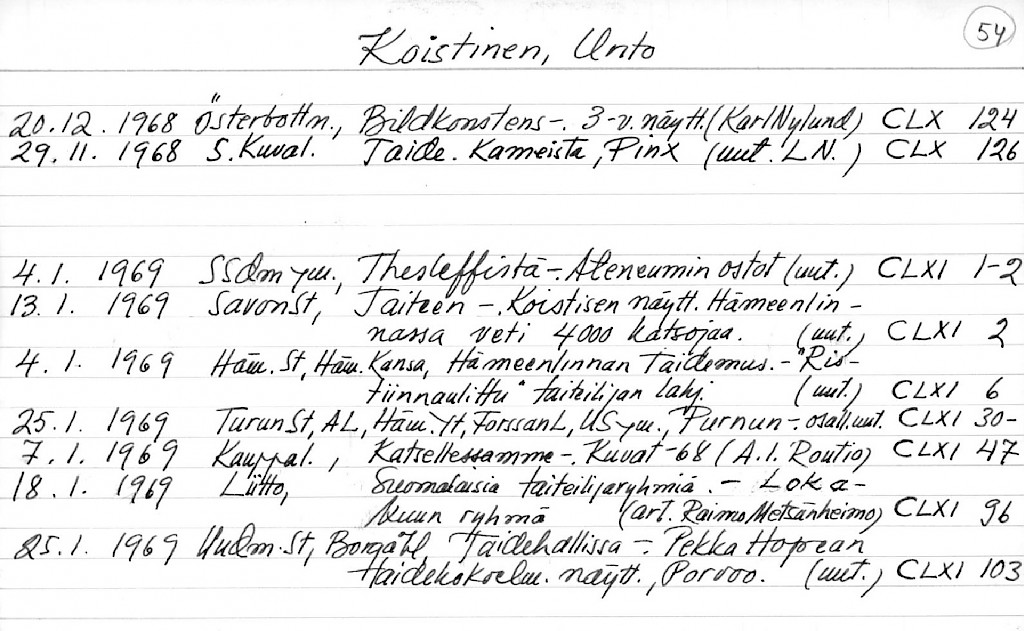 54
Koistinen, Unto
20.12.1968 Österbottn., Bildkonstens-. 3-v. näytt. (Karl Nylund) CLX 124
29.11.1968 S. Kuval. Taide. Kameista, Pinx (uut. L.N.) CLX 126
4.1. 1969 SSdm ym., Thesleffistä-. Ateneumin ostot (uut.) CLXI 1-2
13.1. 1969 SavonSt, Taiteen -. Koistisen näytt. Hämeenlin-
nassa veti 4000 katsojaa. (uut.) CLXI 2
4.1. 1969 Häm. St, Häm. Kansa, Hämeenlinnan Taidemus. - "Ris-
tiinnaulittu" taiteilijan lahj. (uut.) CLXI 6
25.1. 1969 TurunSt, AL, Häm.Yt, ForssanL, US ym., Purnun - osall. uut. CLXI 30-
7.1. 1969 Kauppal., Katsellessamme-. Kuvat-68 (A.I. Routio) CLXI 47
18.1. 1969 Liitto, Suomalaisia taiteilijaryhmiä. - Loka-
kuun ryhmä (art. Raimo Metsänheimo) CLXI 96
25.1. 1969 Uudm. St, Borgåbl, Taidehallissa -. Pekka Hopean
taidekokoelm. näytt., Porvoo. (uut.) CLXI 103